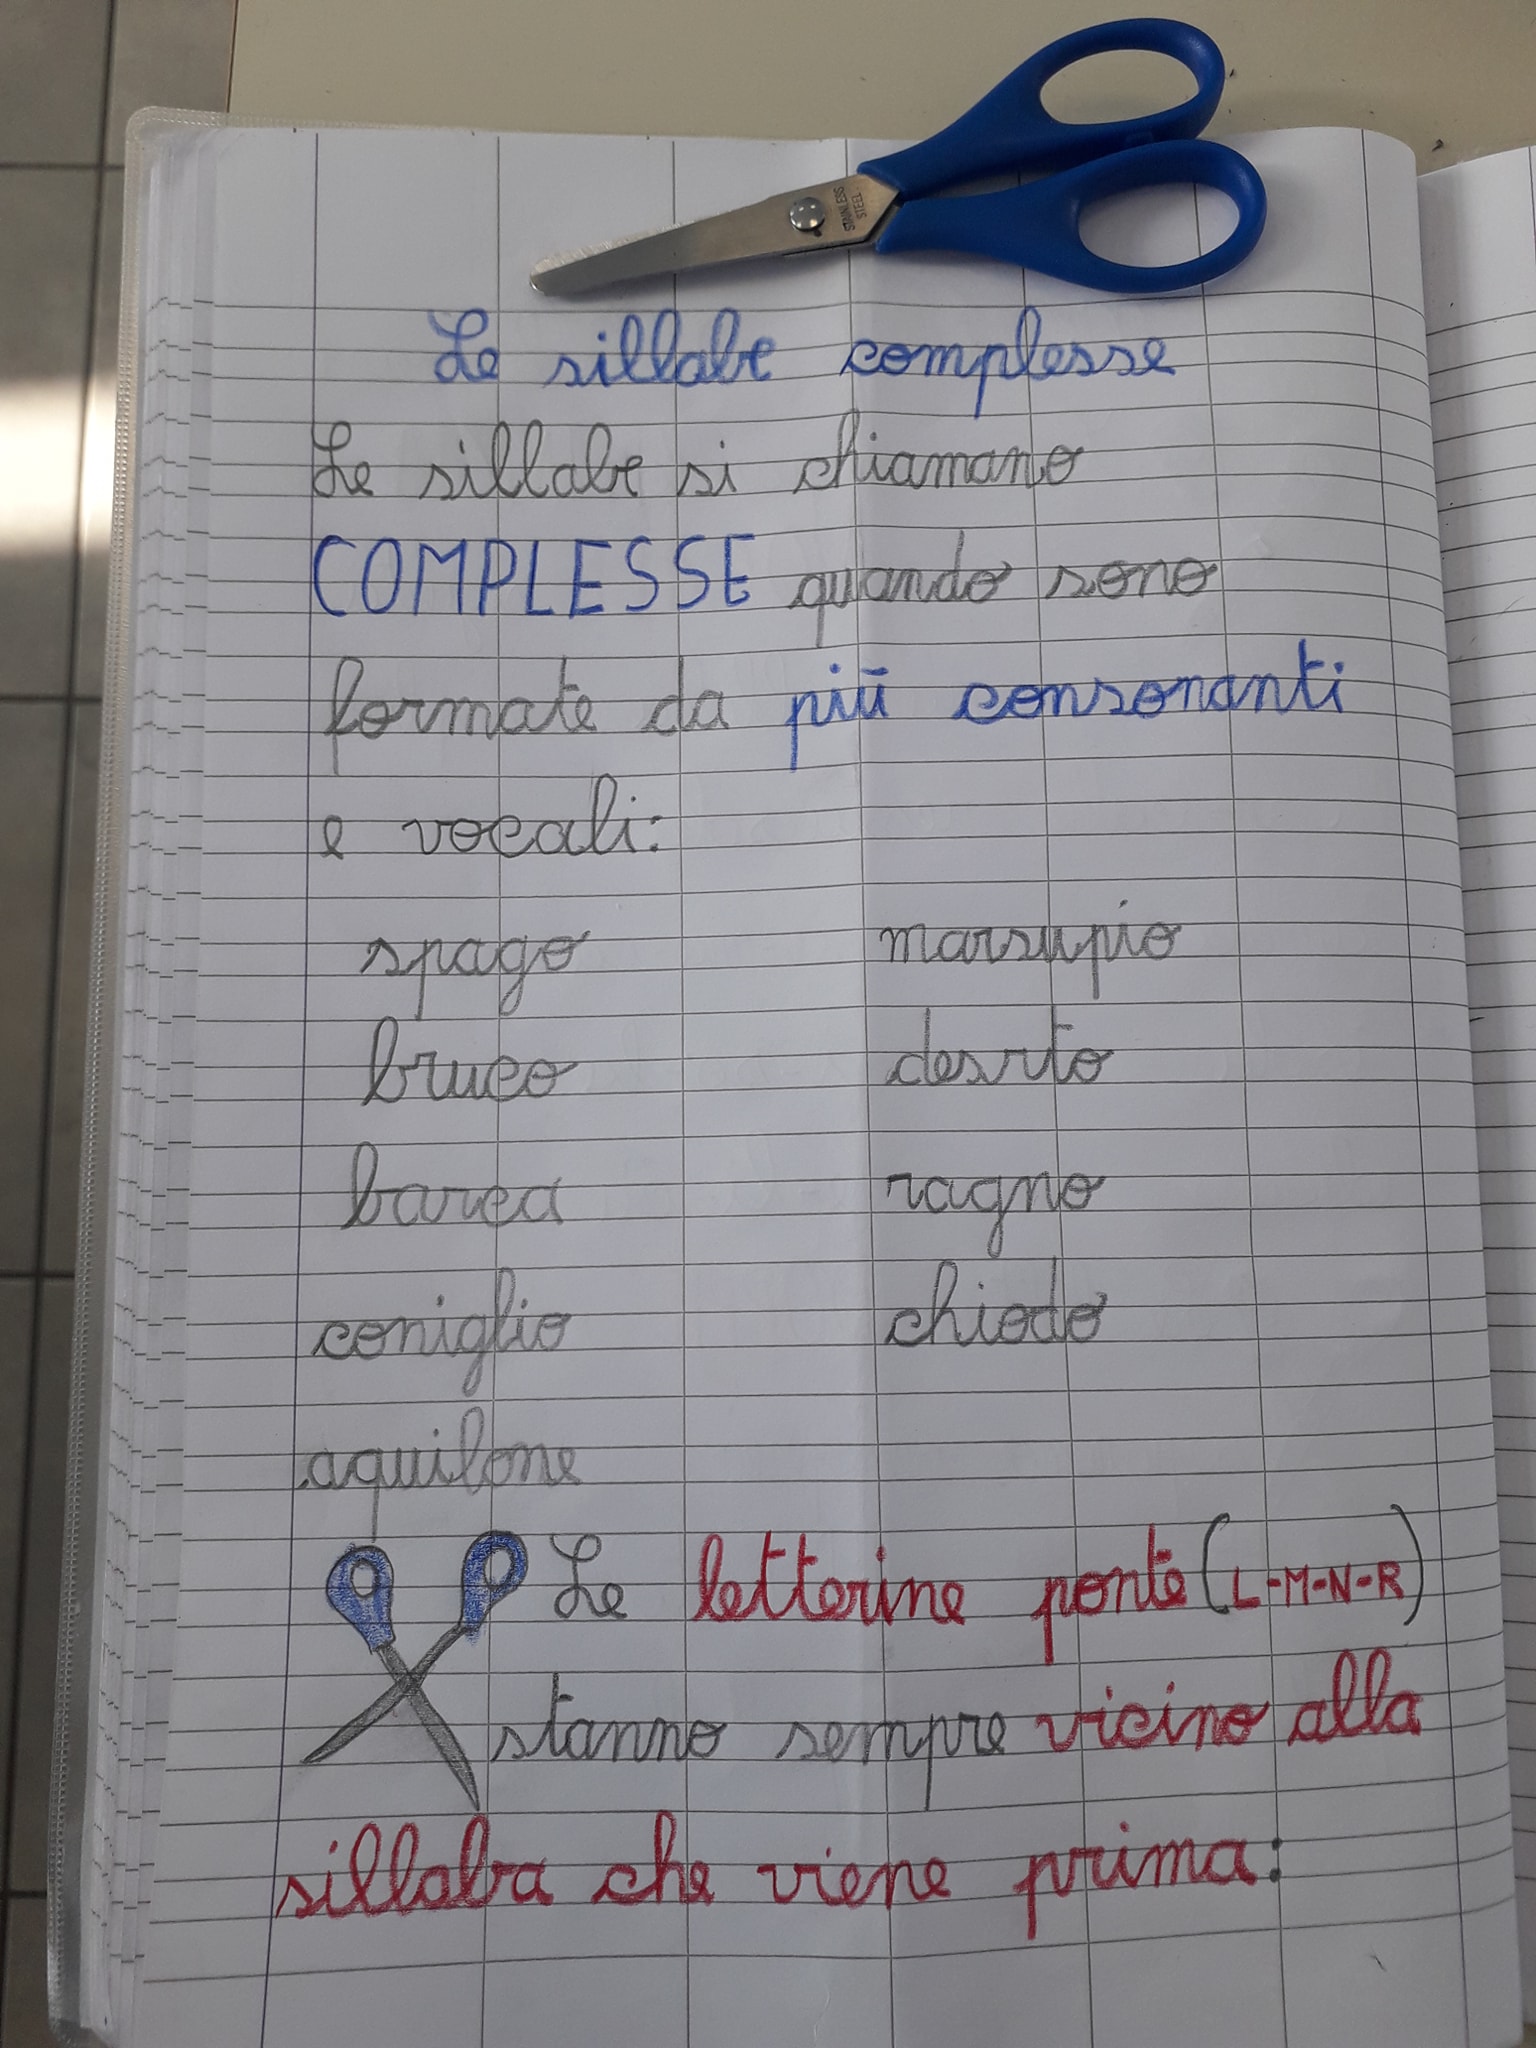 STAINLESS
STEEL
Le sillabe complesse
Le sillabe si chiamano
COMPLESSE quando sono
formate da più consonanti
e vocali:
spago marsupio
bruco desrto
barca ragno
coniglio chiodo
aquilone
Le letterine ponte (L-M-N-R)
stanno sempre vicino alla
sillaba che viene prima: